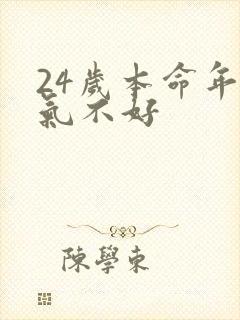 24歲本命年
氣不好
陳學東